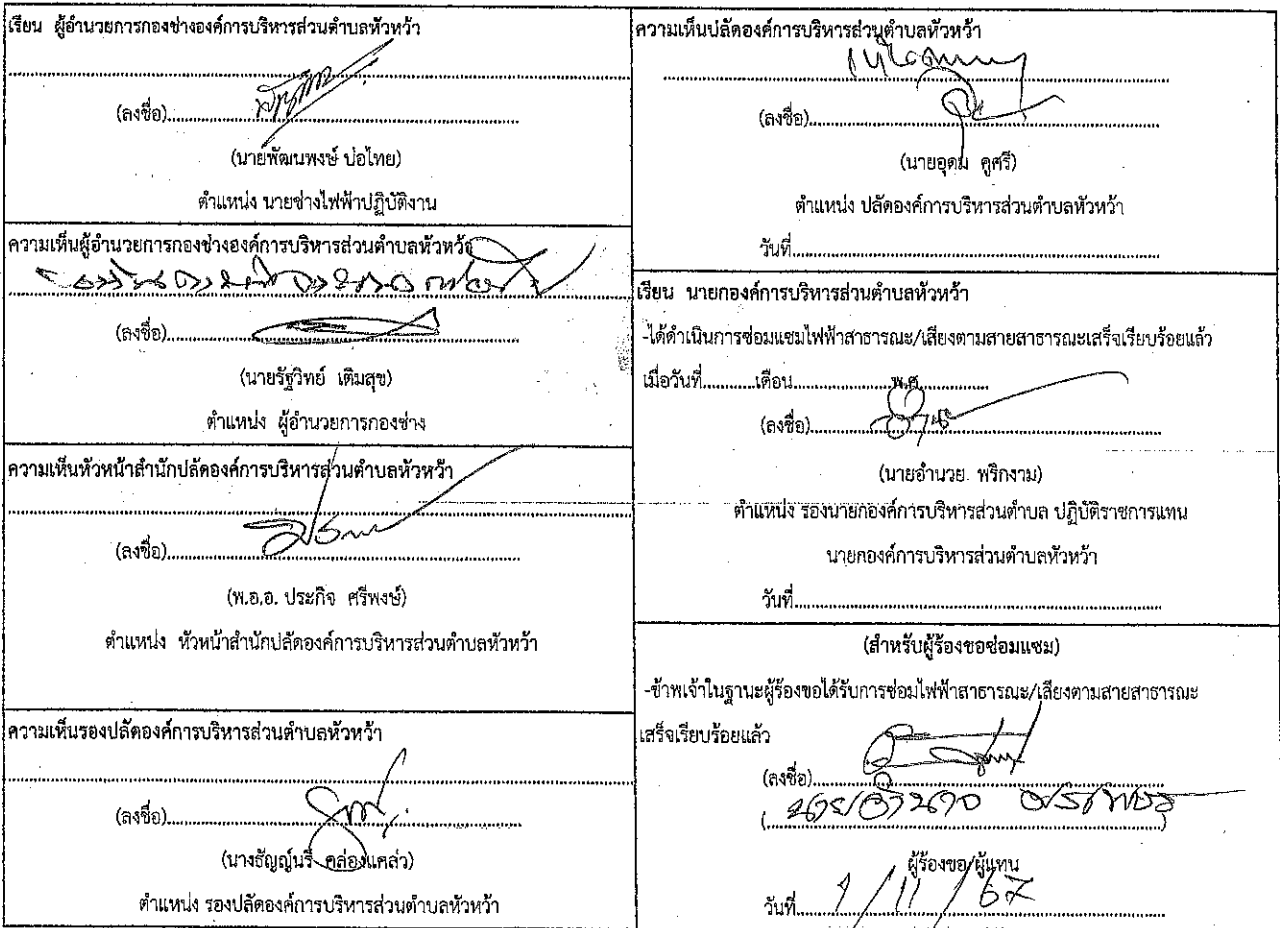 เรียน ผู้อำนวยการกองช่างองค์การบริหารส่วนตำบลหัวหว้า
(ลงชื่อ)
(นายพัฒนพงษ์ บ่อไทย)
ตำแหน่ง นายช่างไฟฟ้าปฏิบัติงาน
ความเห็นผู้อำนวยการกองช่างองค์การบริหารส่วนตำบลหัวหว้า
(ลงชื่อ)
(นายรัฐวิทย์ เติมสุข)
ตำแหน่ง ผู้อำนวยการกองช่าง
ความเห็นหัวหน้าสำนักปลัดองค์การบริหารส่วนตำบลหัวหว้า
(ลงชื่อ)
(พ.อ.อ. ประกิจ ศรีพงษ์)
ตำแหน่ง หัวหน้าสำนักปลัดองค์การบริหารส่วนตำบลหัวหว้า
ความเห็นรองปลัดองค์การบริหารส่วนตำบลหัวหว้า
(ลงชื่อ)
(นางธัญญ์นรี คล่องแคล่ว)
ตำแหน่ง รองปลัดองค์การบริหารส่วนตำบลหัวหว้า
ความเห็นปลัดองค์การบริหารส่วนตำบลหัวหว้า
(ลงชื่อ)
(นายอุดม ดูศรี)
ตำแหน่ง ปลัดองค์การบริหารส่วนตำบลหัวหว้า
วันที่
เรียน นายกองค์การบริหารส่วนตำบลหัวหว้า
-ได้ดำเนินการซ่อมแซมไฟฟ้าสาธารณะ/เสียงตามสายสาธารณะเสร็จเรียบร้อยแล้ว
เมื่อวันที่............เดือน......................พ.ศ.
(ลงชื่อ)
(นายอำนวย พริกงาม)
ตำแหน่ง รองนายกองค์การบริหารส่วนตำบล ปฏิบัติราชการแทน
นายกองค์การบริหารส่วนตำบลหัวหว้า
วันที่
(สำหรับผู้ร้องขอซ่อมแซม)
-ข้าพเจ้าในฐานะผู้ร้องขอได้รับการซ่อมไฟฟ้าสาธารณะ/เสียงตามสายสาธารณะ
เสร็จเรียบร้อยแล้ว
(ลงชื่อ)
(นายอำนาจ
ผู้ร้องขอ/ผู้แทน
วันที่ 1/11/67